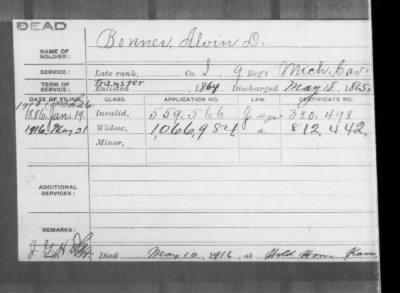 DEAD
NAME OF SOLDIER: Bonner, Alvin D.
SERVICE: Late rank, Co. I, 9 Reg't Mich. Cav.
TERM OF SERVICE: Enlisted 1864 Discharged May 18, 1865
DATE OF FILING. CLASS. APPLICATION NO. LAW. CERTIFICATE NO.
1886, Jan. 19. Invalid, 559,566 380,498
1916, May 31 Widow, 1,066,984 a. 812,442.
Minor,
ADDITIONAL SERVICES:
REMARKS:
Died May 10, 1916, at